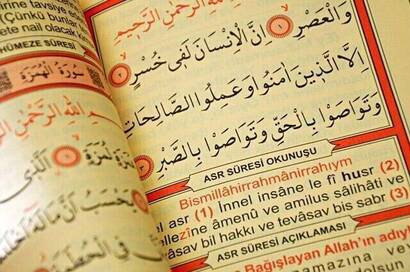 ririne tavsiye e
(Çünkü bunlar
dete nail olacak k
HÜMEZE SÛRESİ
سُورَةُ الْهُمَزَةِ
مِ اللهِ الرَّحْمٰنِ الرَّ
هُمَزَةٍ لُمَزَةٍ ۝١ اَلَّذٖى
يَحْسَبُ اَنَّ مَالَهُ
فِى الْحُطَمَةِ
اللهِ الرَّحْمٰنِ الرَّحِيمِ
وَالْعَصْرِ ۝١ اِنَّ الْاِنْسَانَ لَفٖى خُسْرٍ ۝٢
اِلَّا الَّذٖينَ اٰمَنُوا وَعَمِلُوا الصَّالِحَاتِ
وَتَوَاصَوْا بِالْحَقِّ وَتَوَاصَوْا بِالصَّبْرِ ۝٣
ASR SÛRESİ OKUNUŞU
Bismillâhirrahmânirrahıym
el asr (1) İnnel insâne le fî husr (2)
ellezîne âmenû ve amilus sâlihâti ve
vâsav bil hakkı ve tevâsav bis sabr (3)
ASR SÛRESİ AÇIKLAMASI
Bağışlayan Allah'ın adıyl